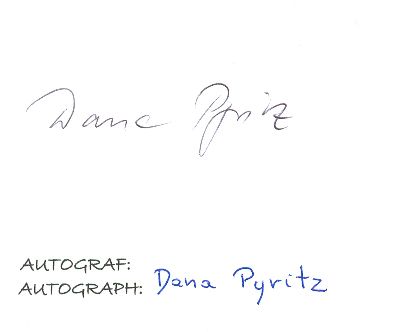 Dana Pyritz
AUTOGRAF:
AUTOGRAPH: Dana Pyritz